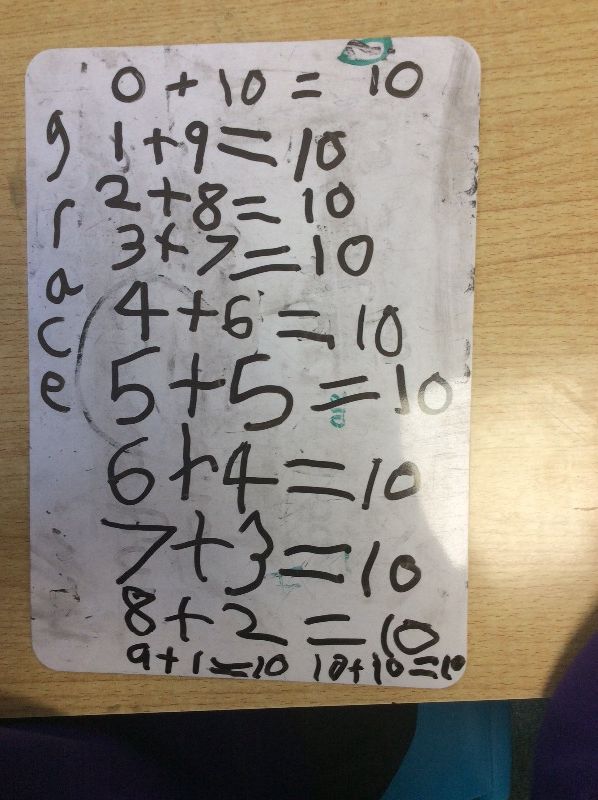 0 + 10 = 10
1 + 9 = 10
2 + 8 = 10
3 + 7 = 10
4 + 6 = 10
5 + 5 = 10
6 + 4 = 10
7 + 3 = 10
8 + 2 = 10
9 + 1 = 10 10 + 10 = 10
grace